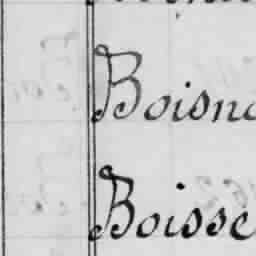 Boisn
Boisse